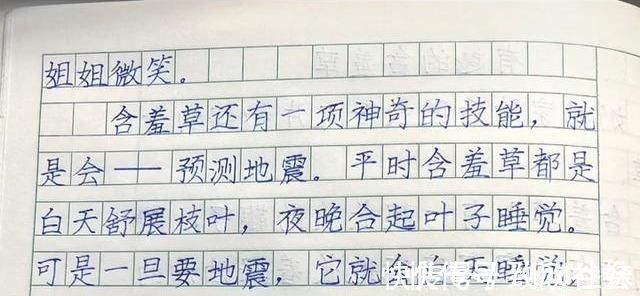 姐姐微笑。
含羞草还有一项神奇的技能，就
是会——预测地震。平时含羞草都是
白天舒展枝叶，夜晚合起叶子睡觉。
可是一旦要地震，它就